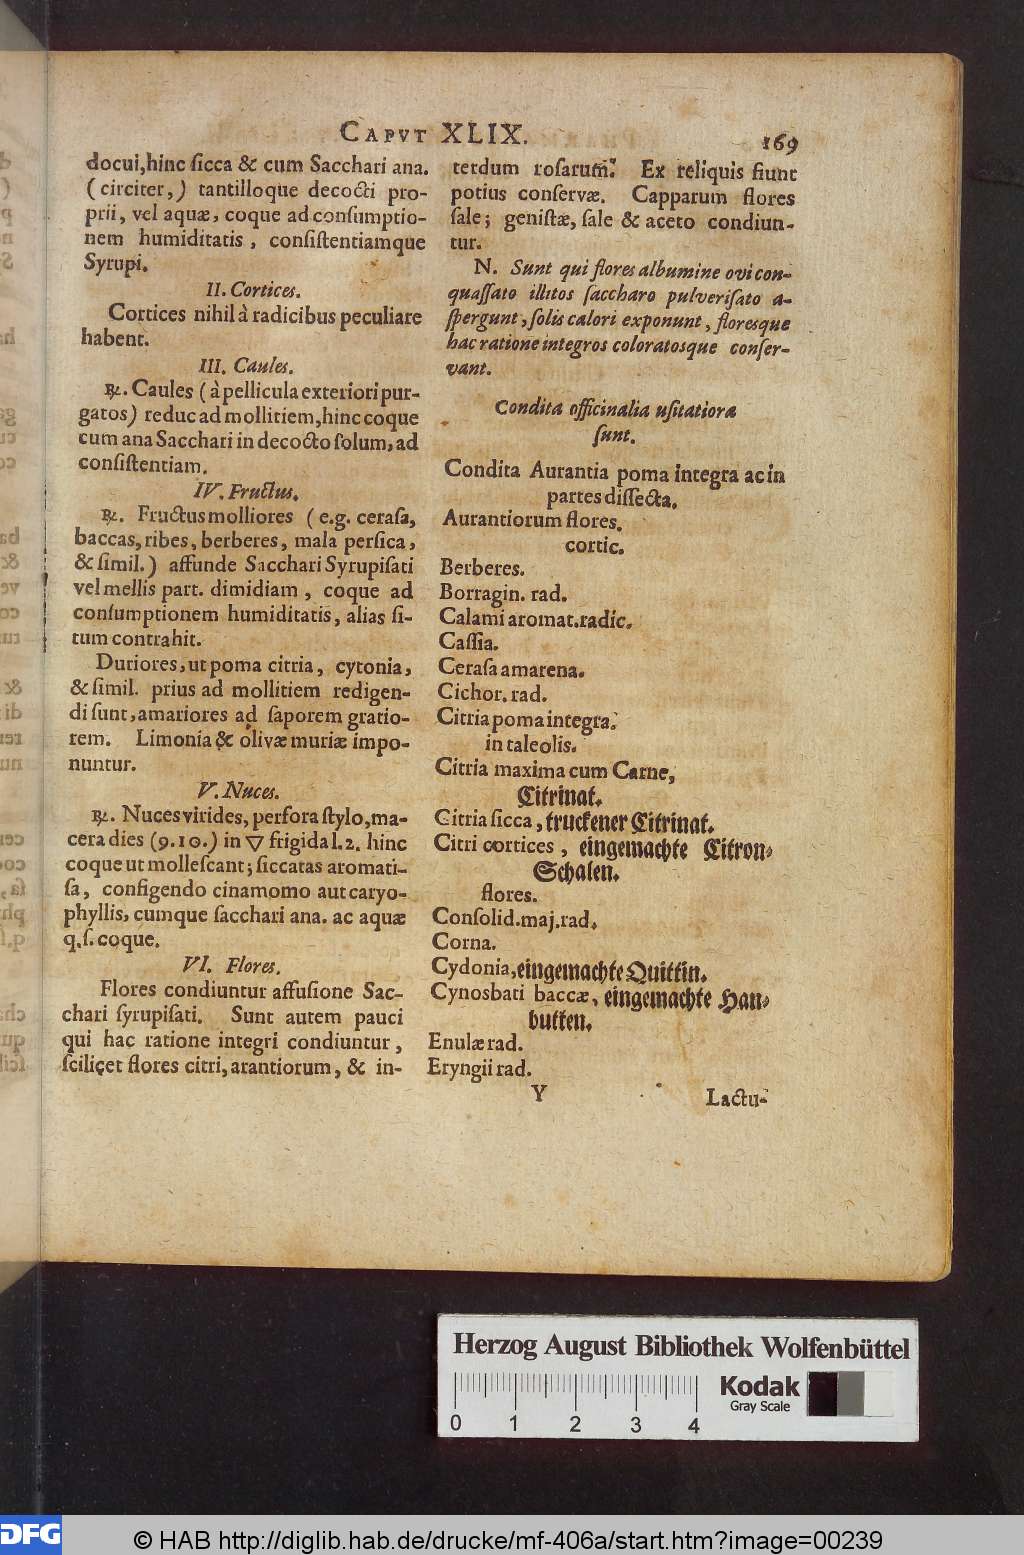 CAPVT XLIX.
169
docui, hinc ſicca & cum Sacchari ana.
(circiter,) tantilloque decocti pro-
prii, vel aquæ, coque ad conſumptio-
nem humiditatis, conſiſtentiamque
Syrupi.
II. Cortices.
Cortices nihil à radicibus peculiare
habent.
III. Caules.
℞. Caules (à pellicula exteriori pur-
gatos) reduc ad mollitiem, hinc coque
cum ana Sacchari in decocto ſolum, ad
conſiſtentiam.
IV. Fructus.
℞. Fructus molliores (e.g. ceraſa,
baccas, ribes, berberes, mala perſica,
& ſimil.) affunde Sacchari Syrupiſati
vel mellis part. dimidiam, coque ad
conſumptionem humiditatis, alias ſi-
tum contrahit.
Duriores, ut poma citria, cytonia,
& ſimil. prius ad mollitiem redigen-
di ſunt, amariores ad ſaporem gratio-
rem. Limonia & olivæ muriæ impo-
nuntur.
V. Nuces.
℞. Nuces virides, perfora ſtylo, ma-
cera dies (9.10.) in ▽ frigida l.2. hinc
coque ut molleſcant; ſiccatas aromati-
ſa, configendo cinamomo aut caryo-
phyllis, cumque ſacchari ana. ac aquæ
q.ſ. coque.
VI. Flores.
Flores condiuntur affuſione Sac-
chari ſyrupiſati. Sunt autem pauci
qui hac ratione integri condiuntur,
ſcilicet flores citri, arantiorum, & in-
terdum roſarum. Ex reliquis fiunt
potius conſervæ. Capparum flores
ſale; geniſtæ, ſale & aceto condiun-
tur.
N. Sunt qui flores albumine ovi con-
quaſſato illitos ſaccharo pulveriſato a-
ſpergunt, ſolis calori exponunt, floresque
hac ratione integros coloratosque conſer-
vant.
Condita officinalia uſitatiora
ſunt.
Condita Aurantia poma integra ac in
partes diſſecta.
Aurantiorum flores.
cortic.
Berberes.
Borragin. rad.
Calami aromat. radic.
Caſſia.
Ceraſa amarena.
Cichor. rad.
Citria poma integra.
in taleolis.
Citria maxima cum Carne,
Citrinat.
Citria ſicca, truckener Citrinat.
Citri cortices, eingemachte Citron-
Schalen.
flores.
Conſolid. maj. rad.
Corna.
Cydonia, eingemachte Quittin.
Cynosbati baccæ, eingemachte Han-
butten.
Enulæ rad.
Eryngii rad.
Y
Lactu-
Herzog August Bibliothek Wolfenbüttel
Kodak
Gray Scale
0 1 2 3 4
DFG
© HAB http://diglib.hab.de/drucke/mf-406a/start.htm?image=00239